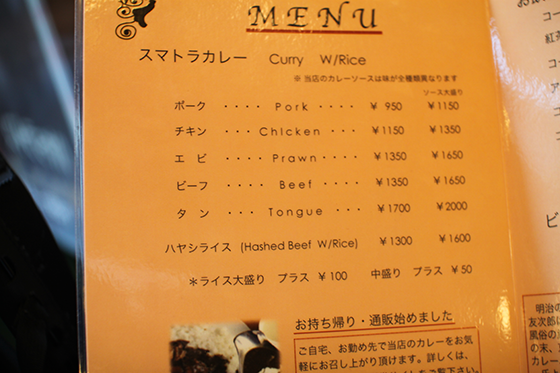 MENU
スマトラカレー Curry W/Rice
※ 当店のカレーソースは味が全種類異なります
ソース大盛り
ポーク ・・・・ Pork ・・・・ ¥ 950 ¥1150
チキン ・・・ Chicken ・・・・ ¥1150 ¥1350
エビ ・・・・ Prawn ・・・・ ¥1350 ¥1650
ビーフ ・・・・ Beef ・・・・ ¥1350 ¥1650
タン ・・・ Tongue ・・・・ ¥1700 ¥2000
ハヤシライス (Hashed Beef W/Rice) ¥1300 ¥1600
＊ライス大盛り プラス ¥100 中盛り プラス ¥50
お持ち帰り・通販始めました
ご自宅、お勤め先で当店のカレーをお気
軽にお召し上がり頂けます。詳しくは、
コー
紅茶
コー
ビ
明治の
友次郎
風俗の
の末、
カレー